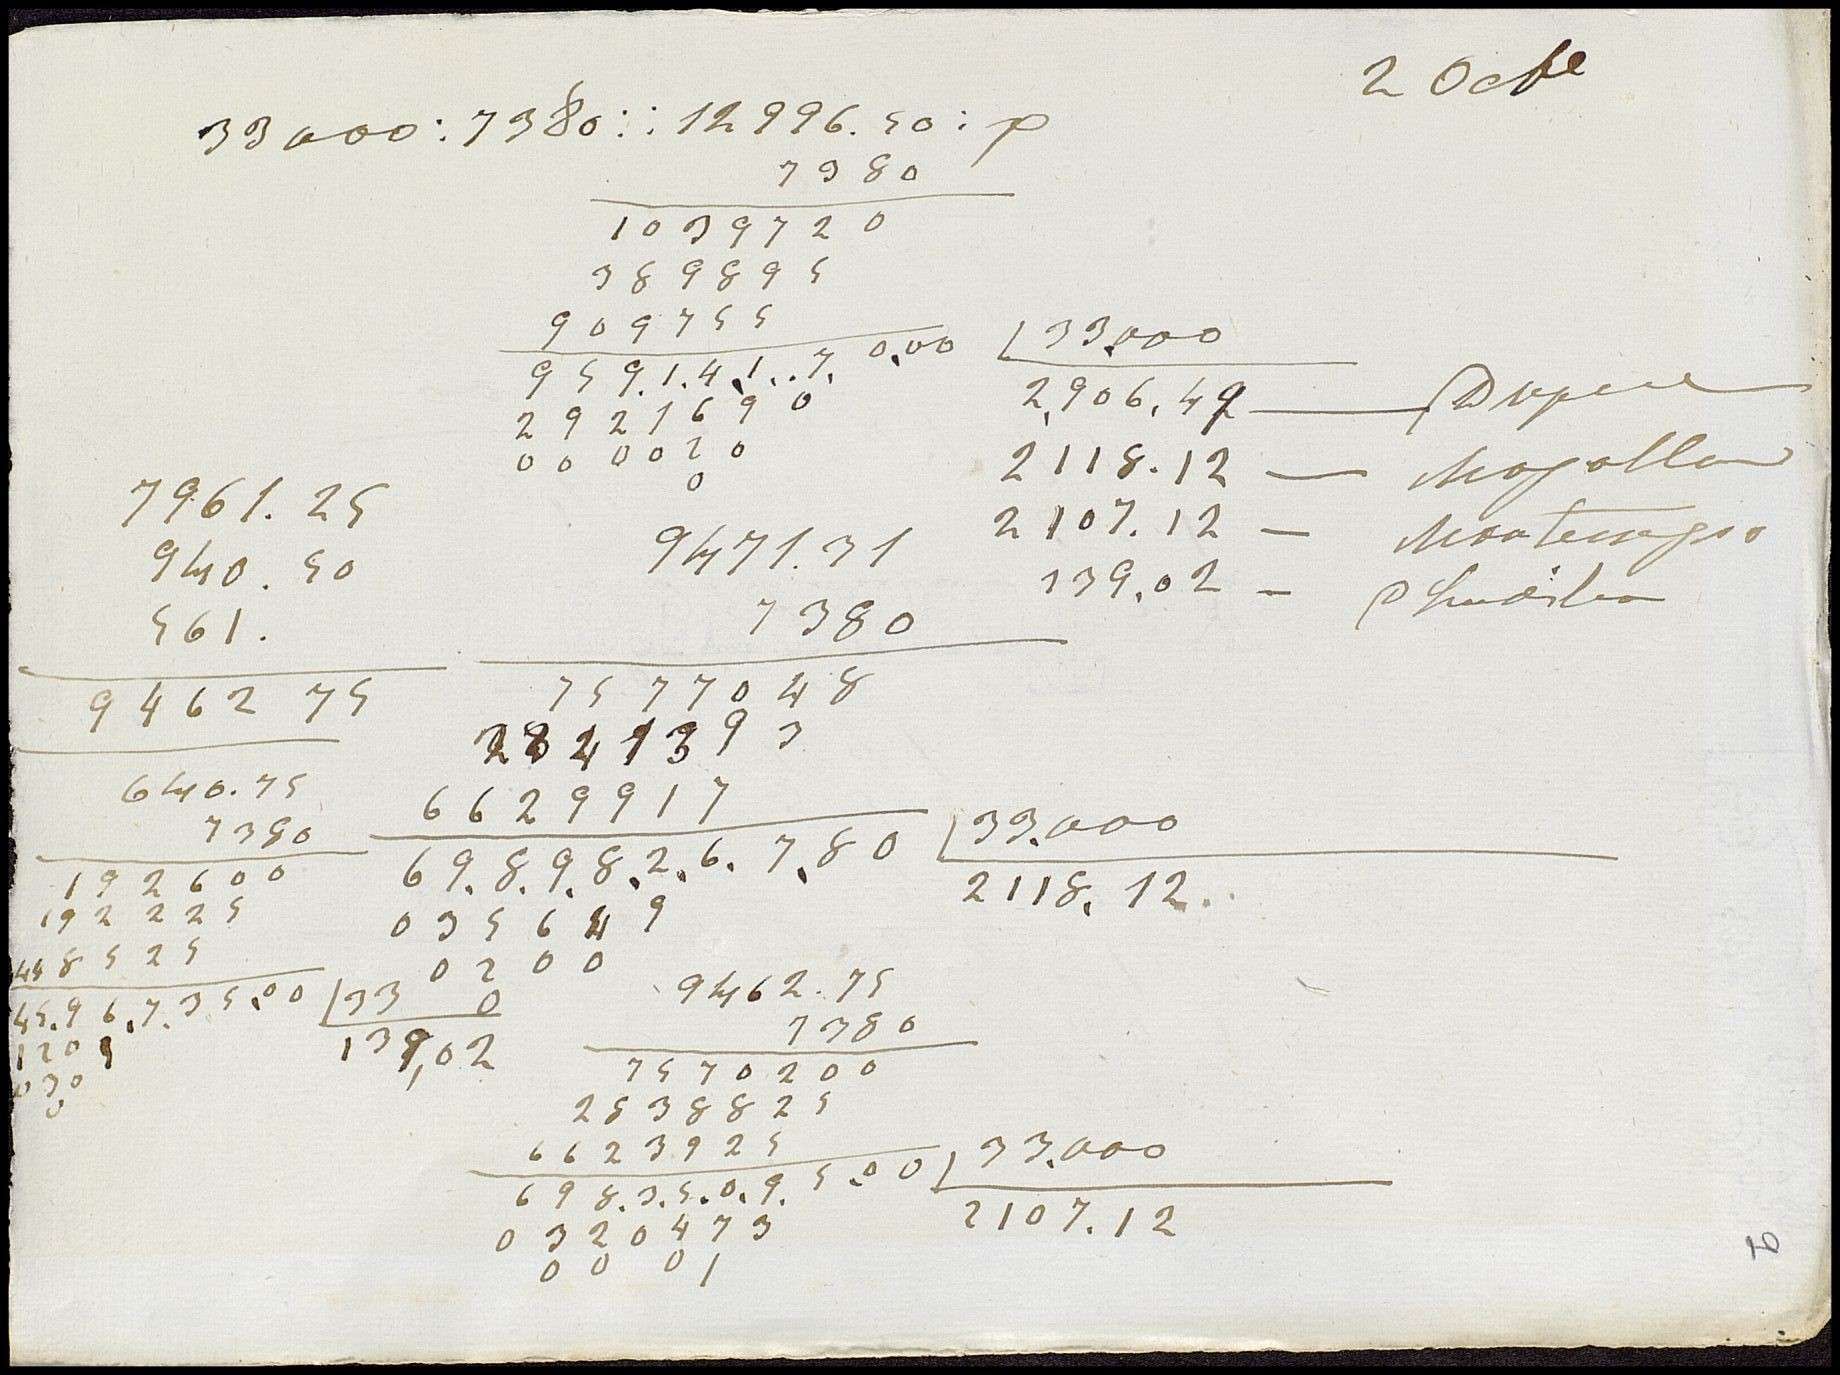 2 Octe
33000:7380::12996.50:p
7380
1039720
389895
909755
959.1.4.1..7.0.00 33.000
2921690
000020
0
2,906.49
2118.12 — Mogollon
2107.12 — Montenegro
139.02 —
7961.25
940.50
561.
9462 75
9471.31
7380
7577048
2841393
6629917
69.8.9.8.2.6.7.80 33.000
2118.12..
035649
0200
640.75
7380
192600
192225
448525
45.96.7.35.00 33 0
139,02
1209
030
0
9462.75
7380
7570200
2838825
6623925
698.3.5.0.9.5.00 33.000
2107.12
0320473
00 01